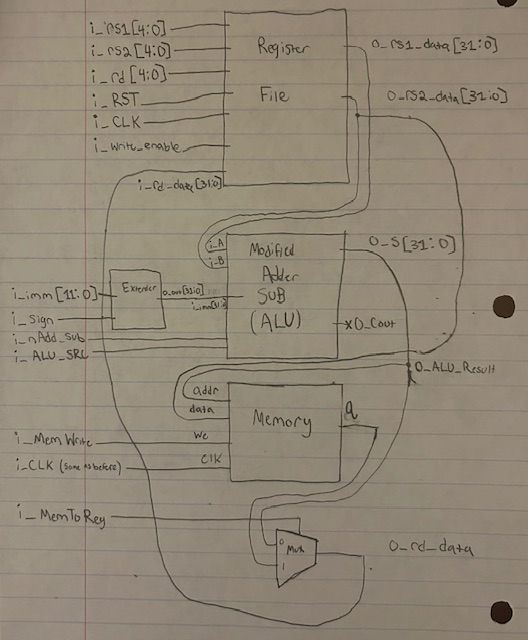 i_rs1[4:0]
i_rs2[4:0]
i_rd[4:0]
i_RST
i_CLK
i_write_enable
i_rd_data[31:0]
Register
File
O_rs1_data[31:0]
O_rs2_data[31:0]
i_A
i_B
Modified
Adder
SUB
(ALU)
O_S[31:0]
xO_Cout
i_imm[11:0]
i_sign
Extender
O_out[31:0]
i_imm[31:0]
i_nAdd_Sub
i_ALU_SRC
O_ALU_Result
addr
data
we
clk
Memory
q
i_MemWrite
i_CLK (same as before)
i_MemToReg
0
Mux
1
O_rd_data